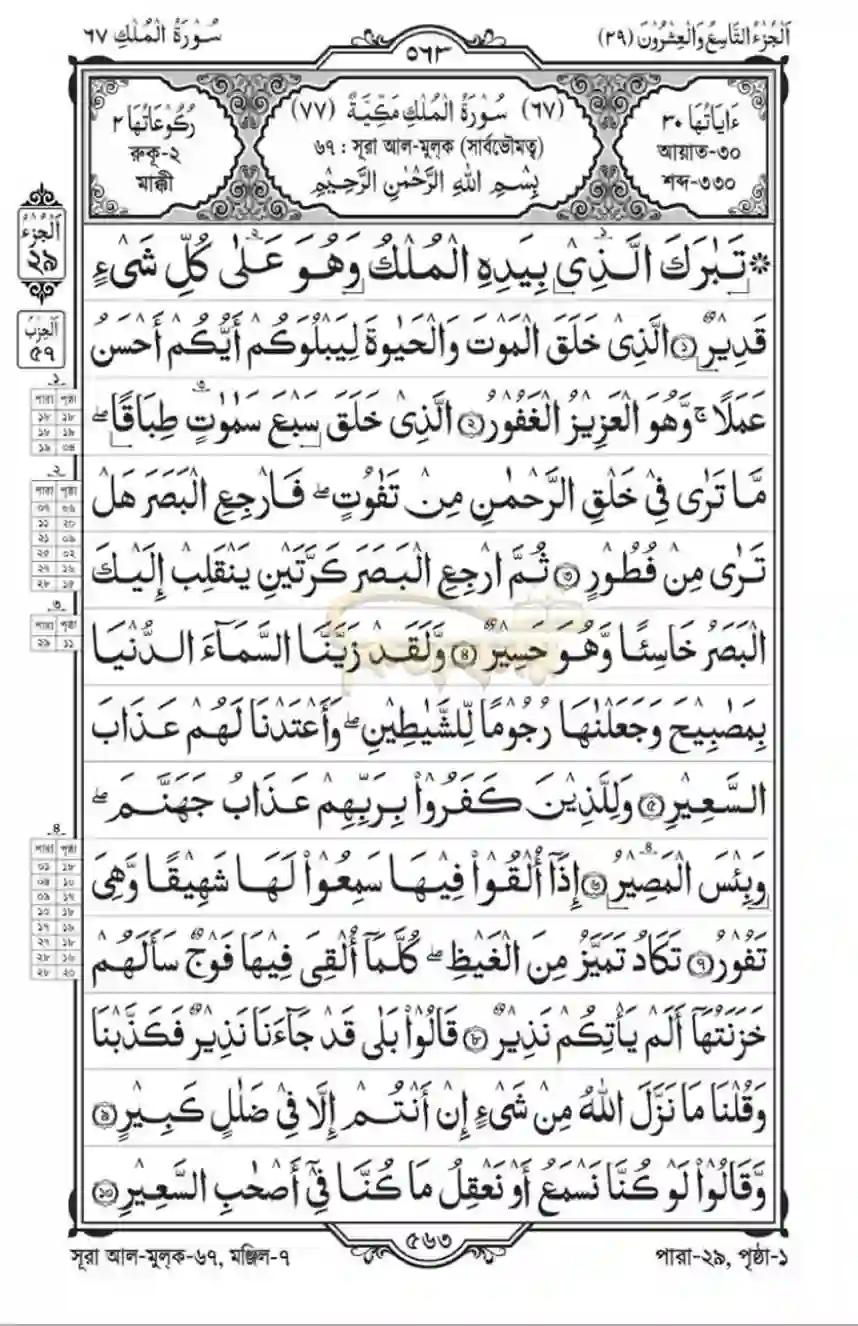 اَلْجُزْءُ التَّاسِعُ وَالْعِشْرُوْنَ (٢٩)
٥٦٣
سُوْرَةُ الْمُلْكِ ٦٧
ءَايَاتُهَا ٣٠
আয়াত-৩০
শব্দ-৩৩০
(٦٧) سُوْرَةُ الْمُلْكِ مَكِّيَّةٌ (٧٧)
৬৭ : সূরা আল-মুল্ক (সার্বভৌমত্ব)
بِسْمِ اللهِ الرَّحْمٰنِ الرَّحِيْمِ
رُكُوْعَاتُهَا ٢
রুকূ-২
মাক্কী
اَلْجُزْءُ
٢٩
اَلْحِزْبُ
٥٧
تَبٰرَكَ الَّذِيْ بِيَدِهِ الْمُلْكُ وَهُوَ عَلٰى كُلِّ شَيْءٍ
قَدِيْرٌ ۝١ الَّذِيْ خَلَقَ الْمَوْتَ وَالْحَيٰوةَ لِيَبْلُوَكُمْ أَيُّكُمْ أَحْسَنُ
عَمَلًا ۚ وَّهُوَ الْعَزِيْزُ الْغَفُوْرُ ۝٢ الَّذِيْ خَلَقَ سَبْعَ سَمٰوٰتٍ طِبَاقًا ۖ
مَّا تَرٰى فِيْ خَلْقِ الرَّحْمٰنِ مِنْ تَفٰوُتٍ ۖ فَارْجِعِ الْبَصَرَ هَلْ
تَرٰى مِنْ فُطُوْرٍ ۝٣ ثُمَّ ارْجِعِ الْبَصَرَ كَرَّتَيْنِ يَنْقَلِبْ إِلَيْكَ
الْبَصَرُ خَاسِئًا وَّهُوَ حَسِيْرٌ ۝٤ وَّلَقَدْ زَيَّنَّا السَّمَآءَ الدُّنْيَا
بِمَصٰبِيْحَ وَجَعَلْنٰهَا رُجُوْمًا لِّلشَّيٰطِيْنِ ۖ وَأَعْتَدْنَا لَهُمْ عَذَابَ
السَّعِيْرِ ۝٥ وَلِلَّذِيْنَ كَفَرُوْا بِرَبِّهِمْ عَذَابُ جَهَنَّمَ ۖ
وَبِئْسَ الْمَصِيْرُ ۝٦ إِذَآ أُلْقُوْا فِيْهَا سَمِعُوْا لَهَا شَهِيْقًا وَّهِيَ
تَفُوْرُ ۝٧ تَكَادُ تَمَيَّزُ مِنَ الْغَيْظِ ۖ كُلَّمَآ أُلْقِيَ فِيْهَا فَوْجٌ سَأَلَهُمْ
خَزَنَتُهَآ أَلَمْ يَأْتِكُمْ نَذِيْرٌ ۝٨ قَالُوْا بَلٰى قَدْ جَآءَنَا نَذِيْرٌ فَكَذَّبْنَا
وَقُلْنَا مَا نَزَّلَ اللهُ مِنْ شَيْءٍ إِنْ أَنْتُمْ إِلَّا فِيْ ضَلٰلٍ كَبِيْرٍ ۝٩
وَّقَالُوْا لَوْ كُنَّا نَسْمَعُ أَوْ نَعْقِلُ مَا كُنَّا فِيْٓ أَصْحٰبِ السَّعِيْرِ ۝١٠
৫৬৩
সূরা আল-মুল্ক-৬৭, মঞ্জিল-৭
পারা-২৯, পৃষ্ঠা-১